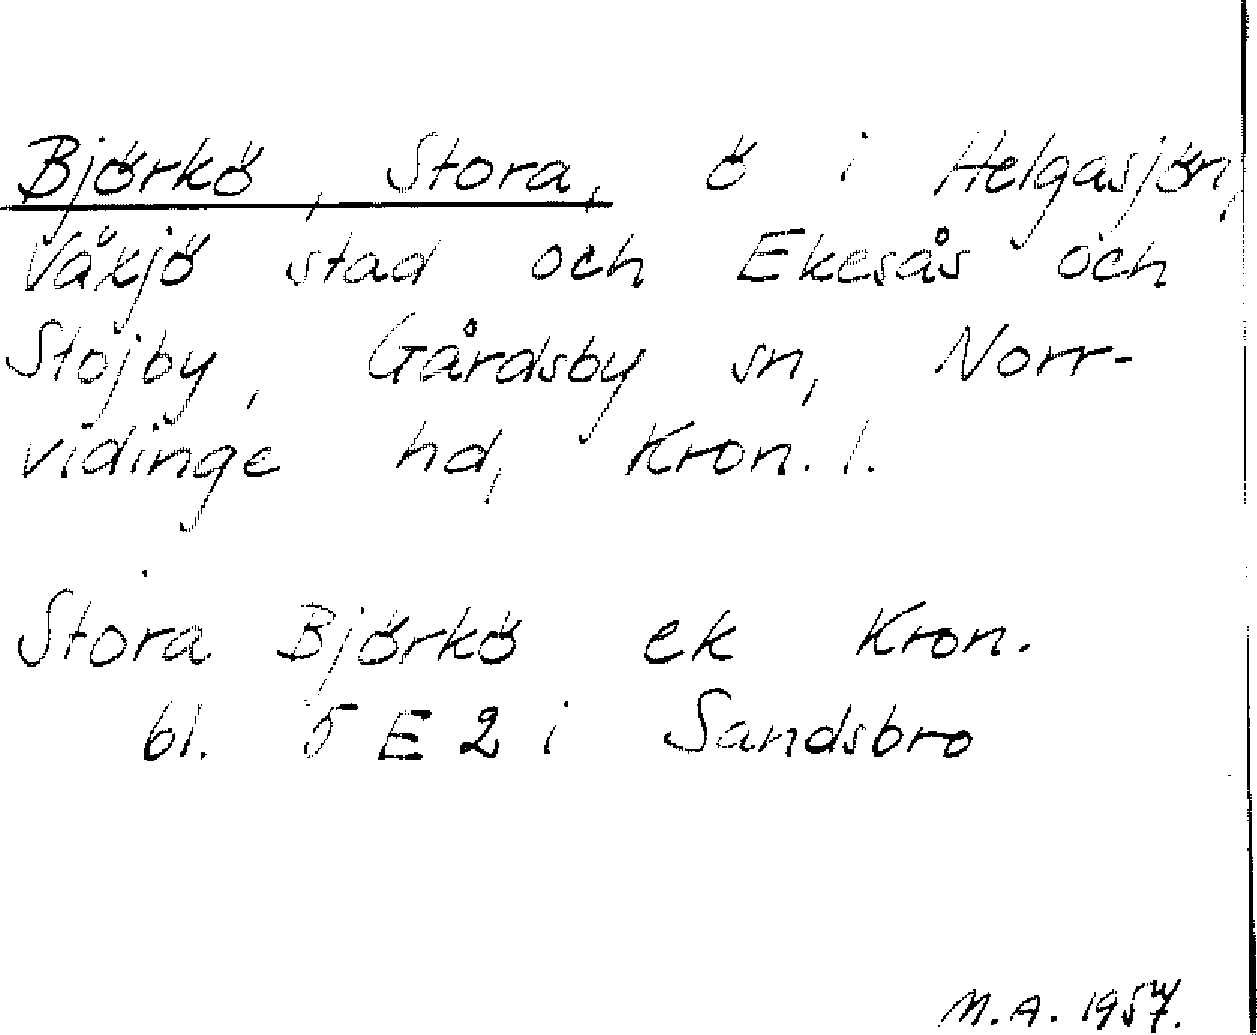 Björkö, Stora, ö i Helgasjön,
Växjö stad och Ekesås och
Stojby, Gårdsby sn, Norr-
vidinge hd, Kron. l.
Stora Björkö ek Kron.
bl. 5 E 2 i Sandsbro
M.A. 1957.